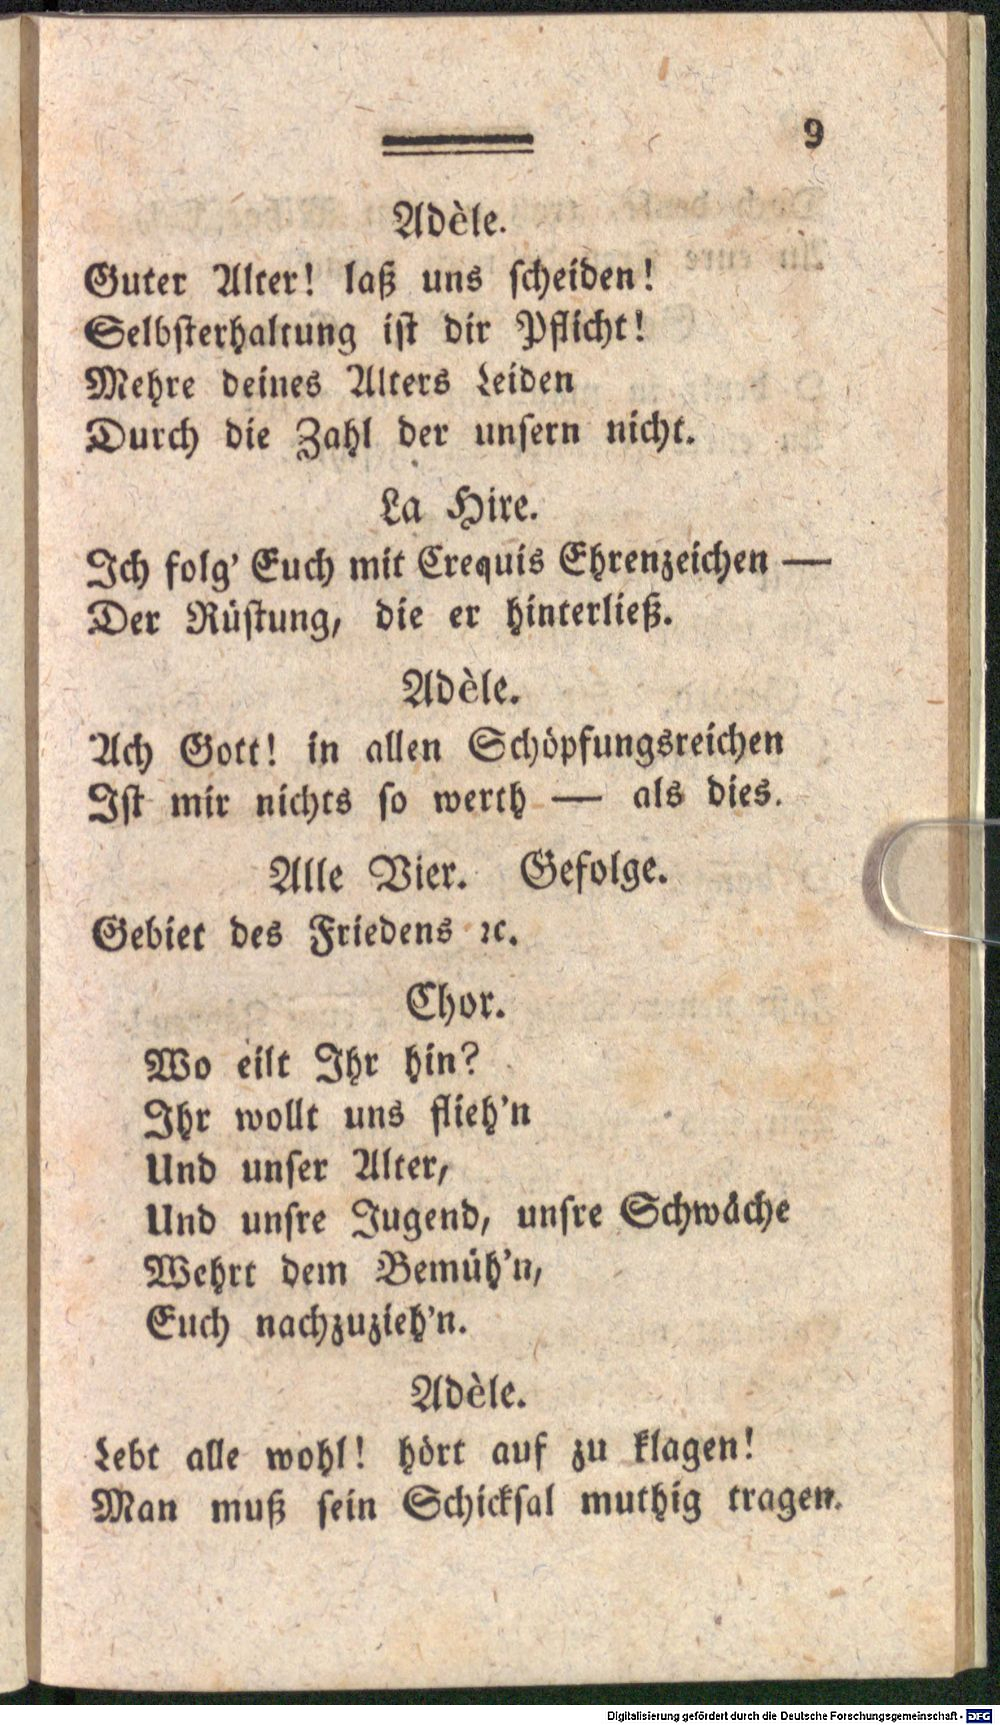 9
Adèle.
Guter Alter! laß uns scheiden!
Selbsterhaltung ist dir Pflicht!
Mehre deines Alters Leiden
Durch die Zahl der unsern nicht.
La Hire.
Ich folg' Euch mit Crequis Ehrenzeichen —
Der Rüstung, die er hinterließ.
Adèle.
Ach Gott! in allen Schöpfungsreichen
Ist mir nichts so werth — als dies.
Alle Vier. Gefolge.
Gebiet des Friedens ꝛc.
Chor.
Wo eilt Ihr hin?
Ihr wollt uns flieh'n
Und unser Alter,
Und unsre Jugend, unsre Schwäche
Wehrt dem Bemüh'n,
Euch nachzuzieh'n.
Adèle.
Lebt alle wohl! hört auf zu klagen!
Man muß sein Schicksal muthig tragen.
Digitalisierung gefördert durch die Deutsche Forschungsgemeinschaft - DFG